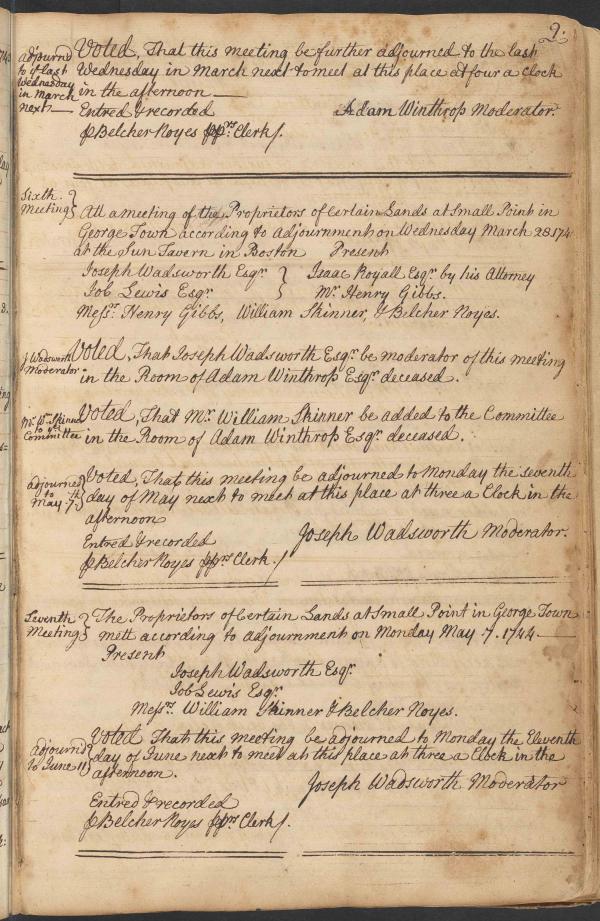 9.
adjourn'd
to yᵉ last
Wednesday
in March
next
Voted, That this meeting be further adjourned to the last
Wednesday in March next to meet at this place at four a Clock
in the afternoon
Entred & recorded Adam Winthrop Moderator.
⅌ Belcher Noyes pprs Clerk/.
Sixth
Meeting
Att a meeting of the Proprietors of Certain Lands at Small Point in
George Town according to Adjournment on Wednesday March 28 174
at the Sun Tavern in Boston Present
Joseph Wadsworth Esqr. } Isaac Royall Esqr. by his Attorney
Job Lewis Esqr. Mr. Henry Gibbs.
Messrs. Henry Gibbs, William Skinner, & Belcher Noyes.
J Wadsworth
Moderator
Voted, That Joseph Wadsworth Esqr. be moderator of this meeting
in the Room of Adam Winthrop Esqr. deceased.
Mr. Wm Skinner
to yᵉ
Committee
Voted, That Mr. William Skinner be added to the Committee
in the Room of Adam Winthrop Esqr. deceased.
adjourned
to
May 7th
Voted, That this meeting be adjourned to Monday the seventh
day of May next to meet at this place at three a Clock in the
afternoon
Entred & recorded Joseph Wadsworth Moderator.
⅌ Belcher Noyes pprs Clerk./
Seventh
Meeting
The Proprietors of Certain Lands at Small Point in George Town
mett according to adjournment on Monday May 7. 1744
Present
Joseph Wadsworth Esqr.
Job Lewis Esqr.
Messrs. William Skinner & Belcher Noyes.
adjourn'd
to June 11
Voted That this meeting be adjourned to Monday the Eleventh
day of June next to meet at this place at three a Clock in the
afternoon.
Joseph Wadsworth Moderator
Entred & recorded
⅌ Belcher Noyes pprs Clerk/.